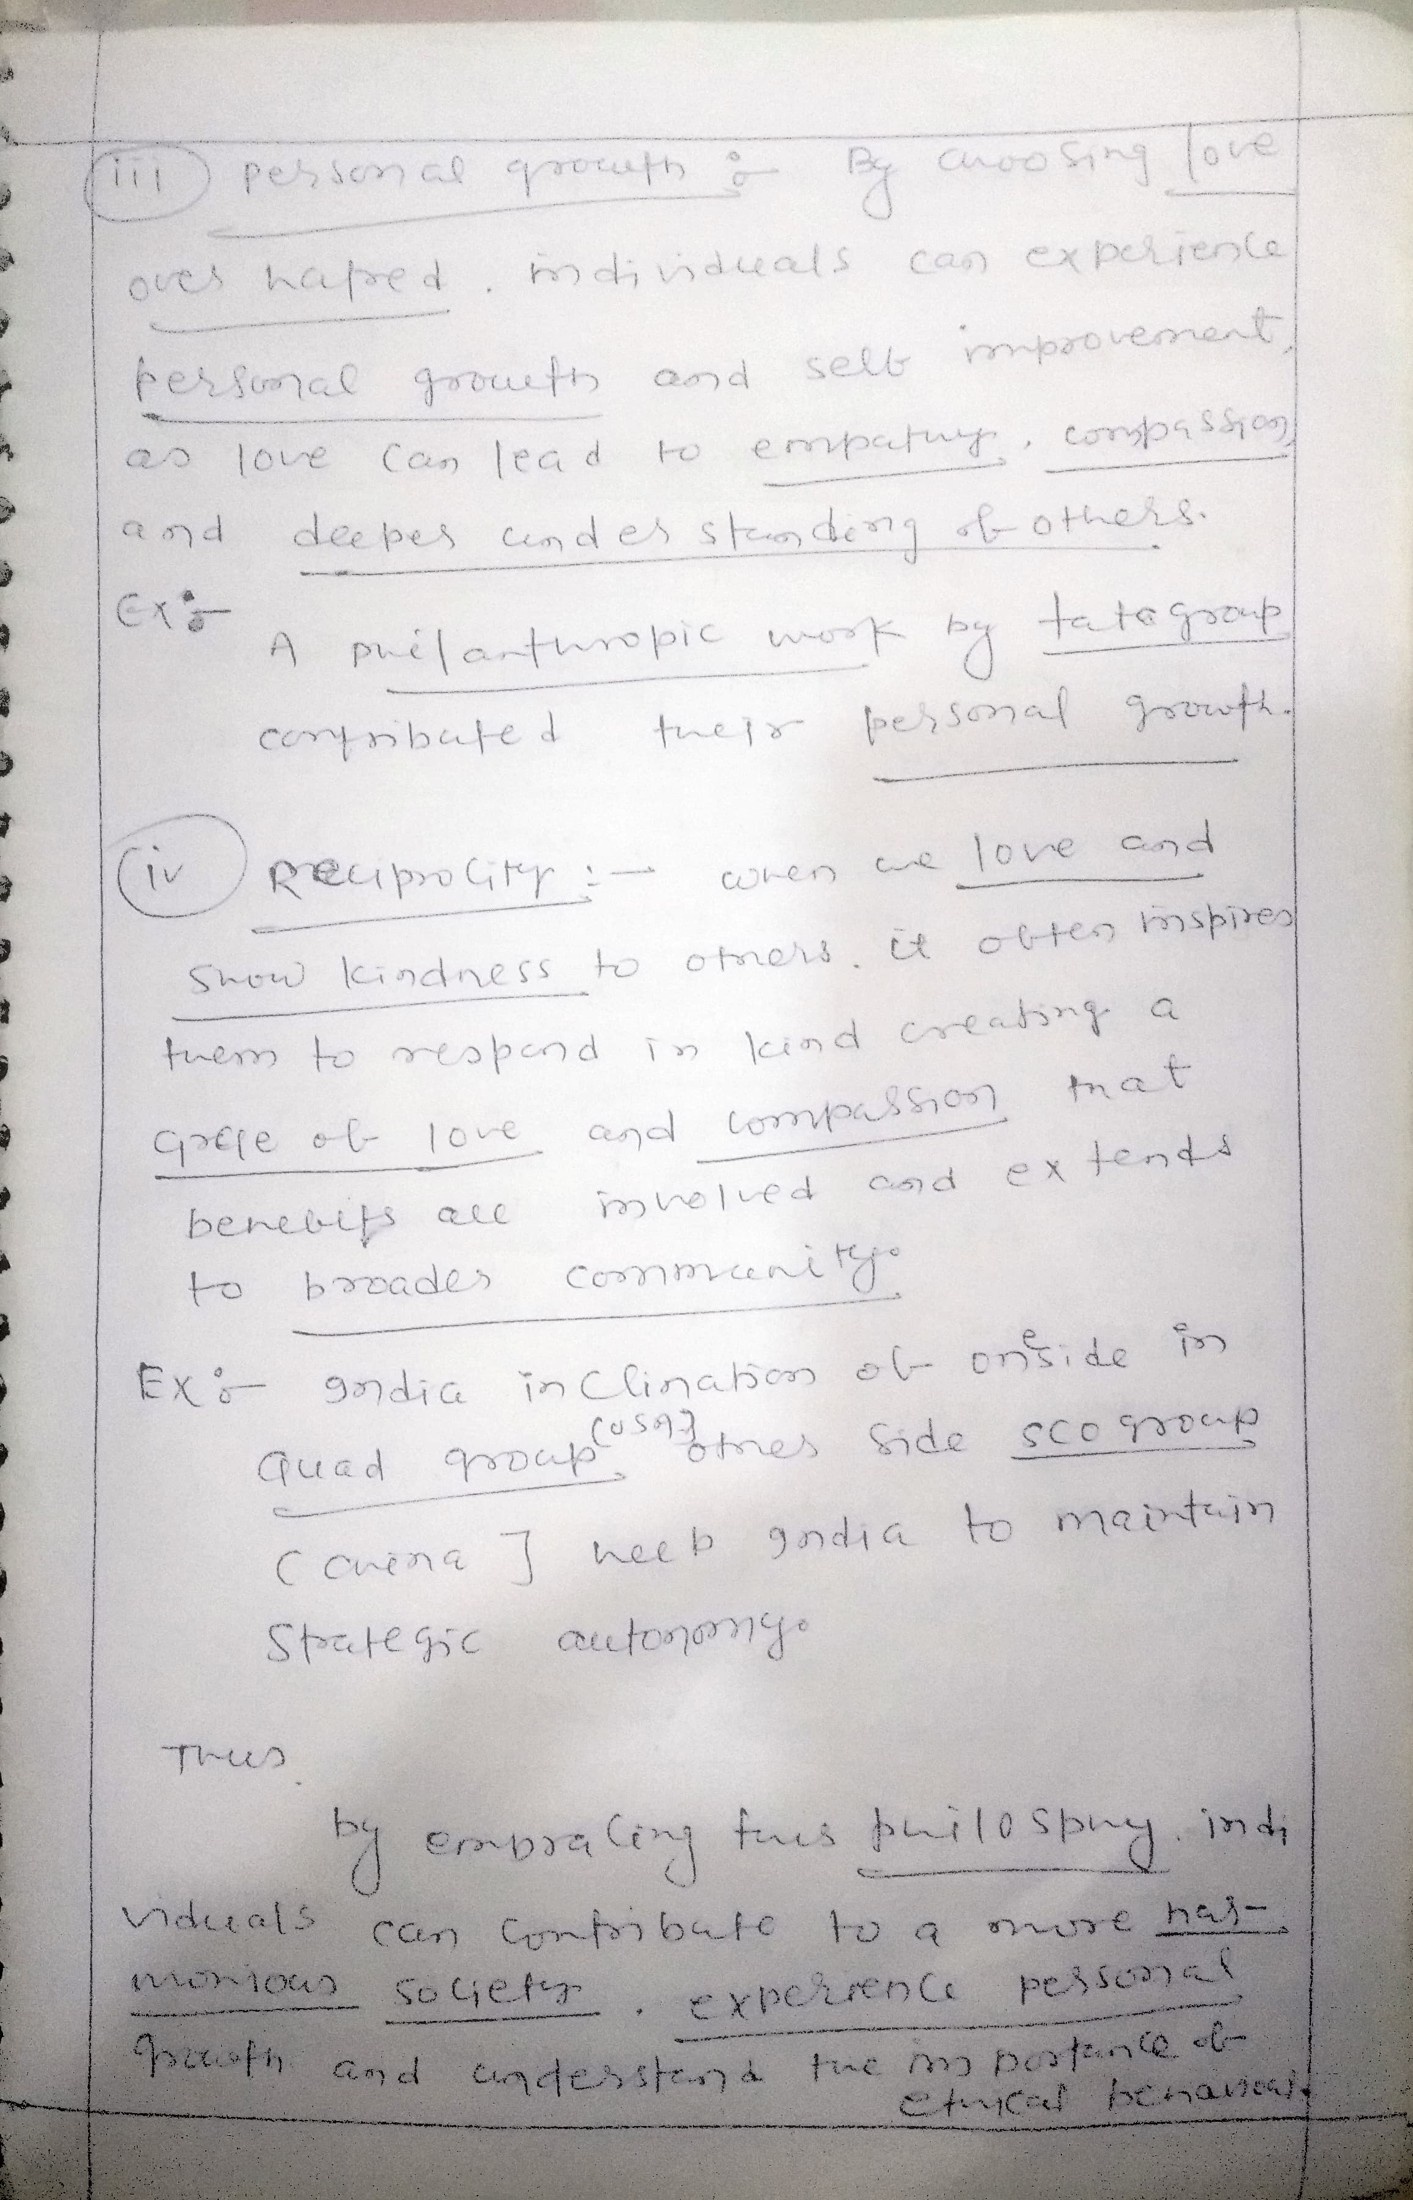 iii) personal growth :- By choosing love
over hatred, individuals can experience
personal growth and self improvement,
as love can lead to empathy, compassion,
and deeper understanding of others.
Ex:- A philanthropic work by tata group
contributed their personal growth.
(iv) Reciprocity :- when we love and
show kindness to others, it often inspires
them to respond in kind creating a
cycle of love and compassion that
benefits all involved and extends
to broader community.
Ex:- India inclination of oneside in
Quad group (USA] other side SCO group
(China] help India to maintain
Strategic autonomy.
Thus,
by embracing this philosphy, indi
viduals can contribute to a more har-
monious society, experience personal
growth and understand the importance of
ethical behaviour.